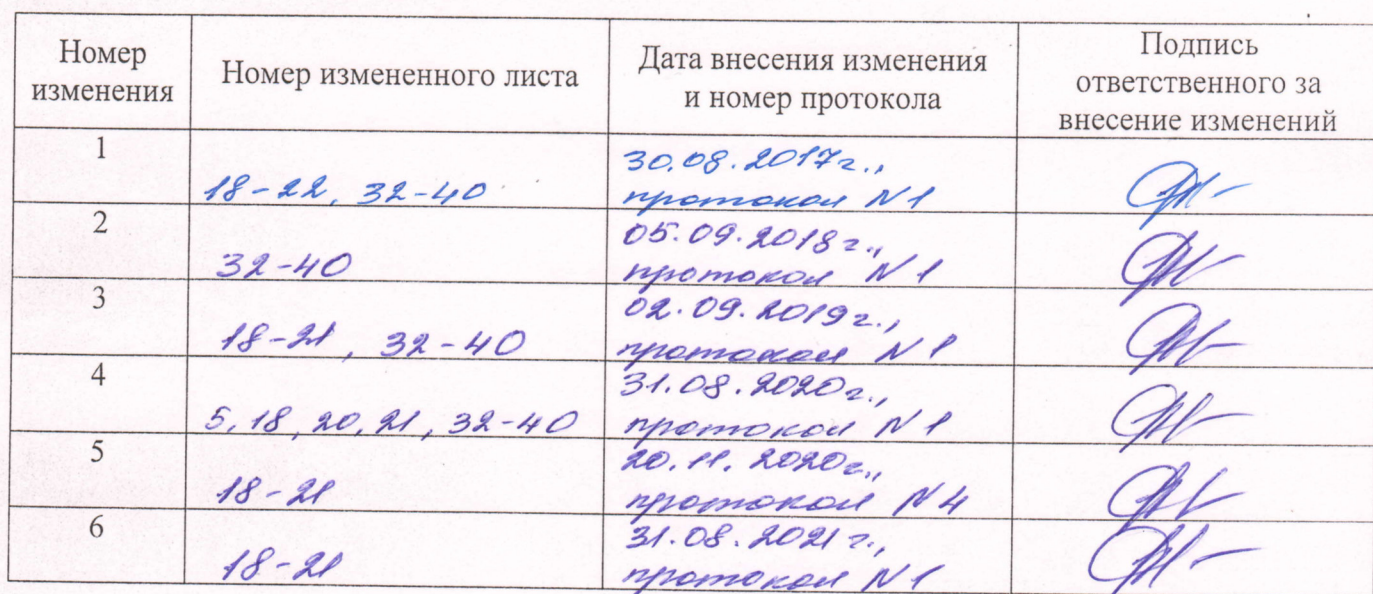 Номер
изменения
Номер измененного листа
Дата внесения изменения
и номер протокола
Подпись
ответственного за
внесение изменений
1
18-22, 32-40
30.08.2017г.,
протокол N1
2
32-40
05.09.2018г.,
протокол N1
3
18-21, 32-40
02.09.2019г.,
протокол N1
4
5, 18, 20, 21, 32-40
31.08.2020г.,
протокол N1
5
18-21
20.11.2020г.,
протокол N4
6
18-21
31.08.2021г.,
протокол N1